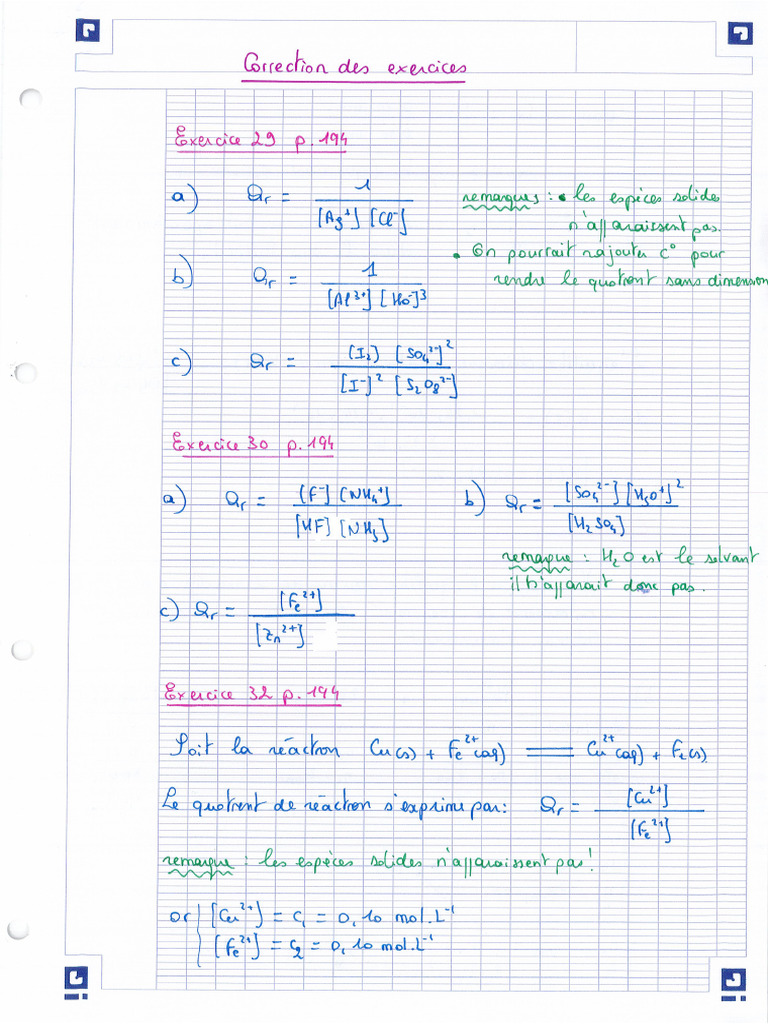 Correction des exercices
Exercice 29 p. 194
a) Qr = 1 / [Ag⁺] [Cl⁻]
remarques : • les espèces solides
n'apparaissent pas.
• On pourrait rajouter C° pour
rendre le quotient sans dimension
b) Qr = 1 / [Al³⁺] [HO⁻]³
c) Qr = [I₂] [SO₄²⁻]² / [I⁻]² [S₂O₈²⁻]
Exercice 30 p. 194
a) Qr = [F⁻] [NH₄⁺] / [HF] [NH₃]
b) Qr = [SO₄²⁻] [H₃O⁺]² / [H₂SO₄]
remarque : H₂O est le solvant
il n'apparait donc pas.
c) Qr = [Fe²⁺] / [Zn²⁺]
Exercice 32 p. 194
Soit la réaction Cu(s) + Fe²⁺(aq) = Cu²⁺(aq) + Fe(s)
Le quotient de réaction s'exprime par: Qr = [Cu²⁺] / [Fe²⁺]
remarque : les espèces solides n'apparaissent pas !
or [Cu²⁺] = C₁ = 0,10 mol.L⁻¹
[Fe²⁺] = C₂ = 0,10 mol.L⁻¹